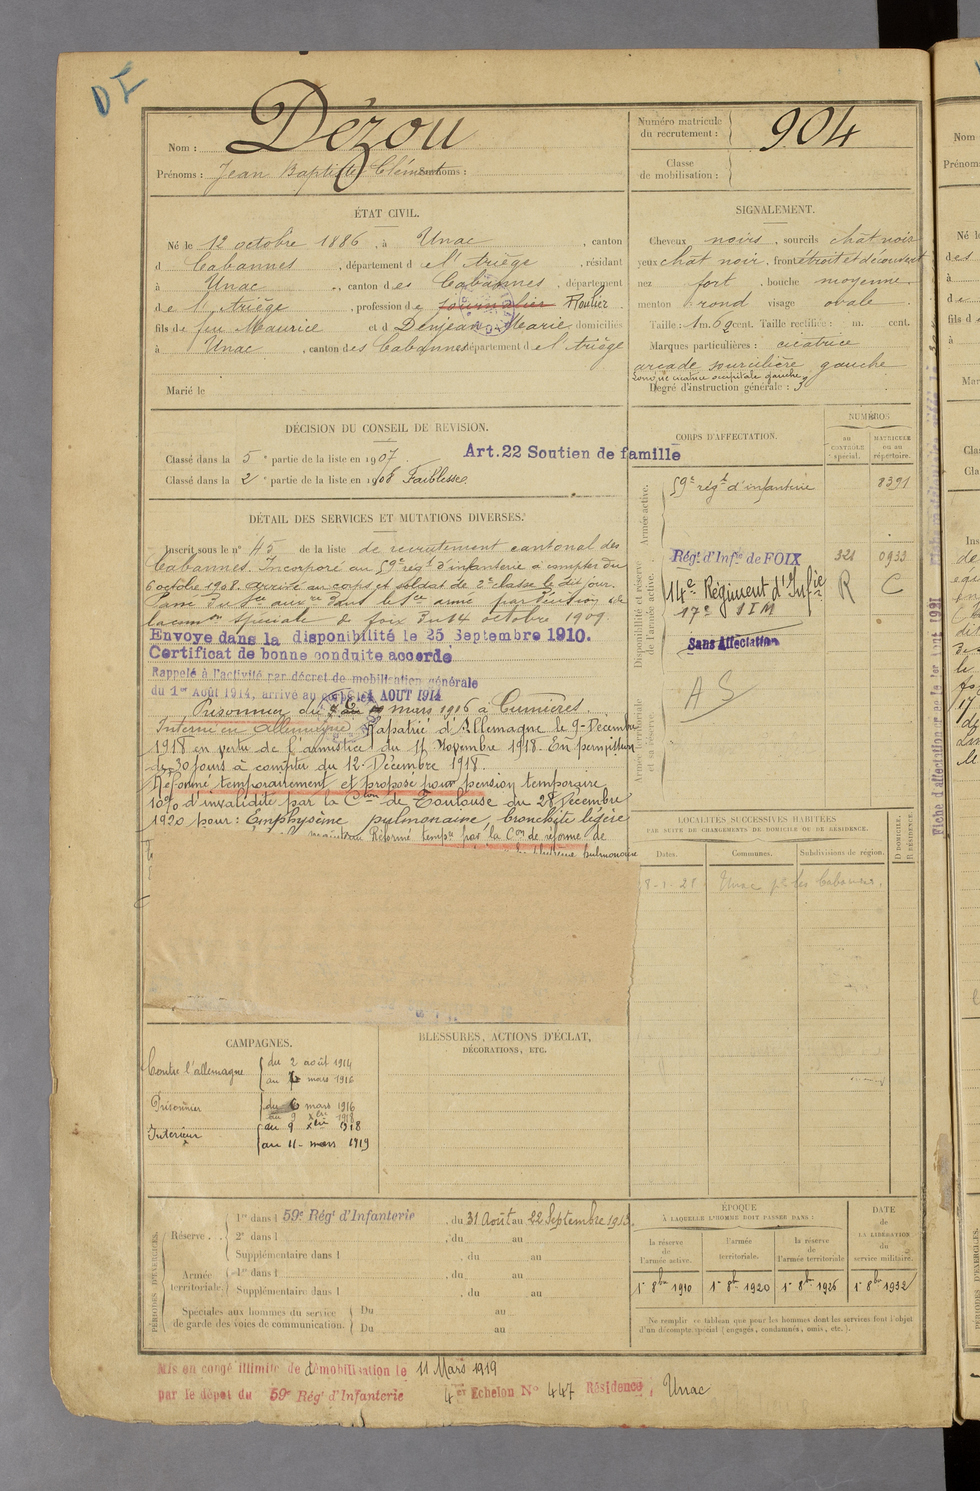 DE
Nom : Dézou
Prénoms : Jean Baptiste Clément Surnoms :
Numéro matricule du recrutement : 904
Classe de mobilisation :
ÉTAT CIVIL.
Né le 12 octobre 1886, à Unac, canton
d Cabannes, département de l'Ariège, résidant
à Unac, canton des Cabannes, département
de l'Ariège, profession de journalier Roulier
fils de feu Maurice et d Denjean Marie domiciliés
à Unac, canton des Cabannes département de l'Ariège
Marié le
SIGNALEMENT.
Cheveux noirs, sourcils chat noir
yeux chat noir, front étroit et découvert
nez fort, bouche moyenne
menton rond visage ovale
Taille : 1 m. 62 cent. Taille rectifiée : m. cent.
Marques particulières : cicatrice
arcade sourcilière gauche
occipitale gauche
Degré d'instruction générale : 3
DÉCISION DU CONSEIL DE REVISION.
Classé dans la 5e partie de la liste en 1907.
Art.22 Soutien de famille
Classé dans la 2e partie de la liste en 1908 Faiblesse
DÉTAIL DES SERVICES ET MUTATIONS DIVERSES.
Inscrit sous le n° 45 de la liste de recrutement cantonal des
Cabannes. Incorporé au 59e régt d'infanterie à compter du
6 octobre 1908. arrivé au corps et soldat de 2e classe le dit jour.
Passé au Sce auxre dans le Sce armé par décision de
la comon spéciale de foix du 14 octobre 1909.
Envoyé dans la disponibilité le 25 Septembre 1910.
Certificat de bonne conduite accordé
Rappelé à l'activité par décret de mobilisation générale
du 1er Août 1914, arrivé au corps le 4 AOUT 1914
Prisonnier du mars 1916 à Cumières.
Interné en Allemagne Rapatrié d'Allemagne le 9 Décembre
1918 en vertu de l'armistice du 11 Novembre 1918. En permission
de 30 jours à compter du 12 Décembre 1918.
Réformé temporairement et proposé pour pension temporaire
10% d'invalidité par la Cton de Toulouse du 28 Décembre
1920 pour : Emphysème pulmonaire, bronchite légère
maintenu Réformé tempre par la Con de réforme de
pulmonaire
CORPS D'AFFECTATION.
NUMÉROS
au CONTRÔLE spécial.
MATRICULE ou au répertoire.
Armée active.
59e régt d'infanterie 8391
Disponibilité et réserve de l'armée active.
Régt d'Infie de FOIX 321 0933
14e Régiment d'Infie R C
17e SIM
Sans Affectation
Armée territoriale et sa réserve.
AS
LOCALITÉS SUCCESSIVES HABITÉES
PAR SUITE DE CHANGEMENTS DE DOMICILE OU DE RÉSIDENCE.
Dates. Communes. Subdivisions de région. D DOMICILE. R RÉSIDENCE.
8-1-28 Unac pr les Cabannes.
CAMPAGNES.
Contre l'allemagne du 2 août 1914
au mars 1916
Prisonnier du 6 mars 1916
au 9 xbre 1918
Intérieur du 9 xbre 1918
au 11 mars 1919
BLESSURES, ACTIONS D'ÉCLAT,
DÉCORATIONS, ETC.
PÉRIODES D'EXERCICES.
Réserve. 1re dans l 59e Régt d'Infanterie, du 31 Août au 22 Septembre 1913.
2e dans l , du au
Supplémentaire dans l , du au
Armée territoriale. 1re dans l , du au
Supplémentaire dans l , du au
Spéciales aux hommes du service Du au
de garde des voies de communication. Du au
ÉPOQUE
À LAQUELLE L'HOMME DOIT PASSER DANS :
la réserve de l'armée active.
l'armée territoriale.
la réserve de l'armée territoriale
DATE de LA LIBÉRATION du service militaire.
1er 8bre 1910 1er 8bre 1920 1er 8bre 1926 1er 8bre 1932
Ne remplir ce tableau que pour les hommes dont les services font l'objet
d'un décompte spécial (engagés, condamnés, omis, etc.).
Mis en congé illimité de démobilisation le 11 Mars 1919
par le dépôt du 59e Régt d'Infanterie 4er Echelon N° 447 Résidence, Unac